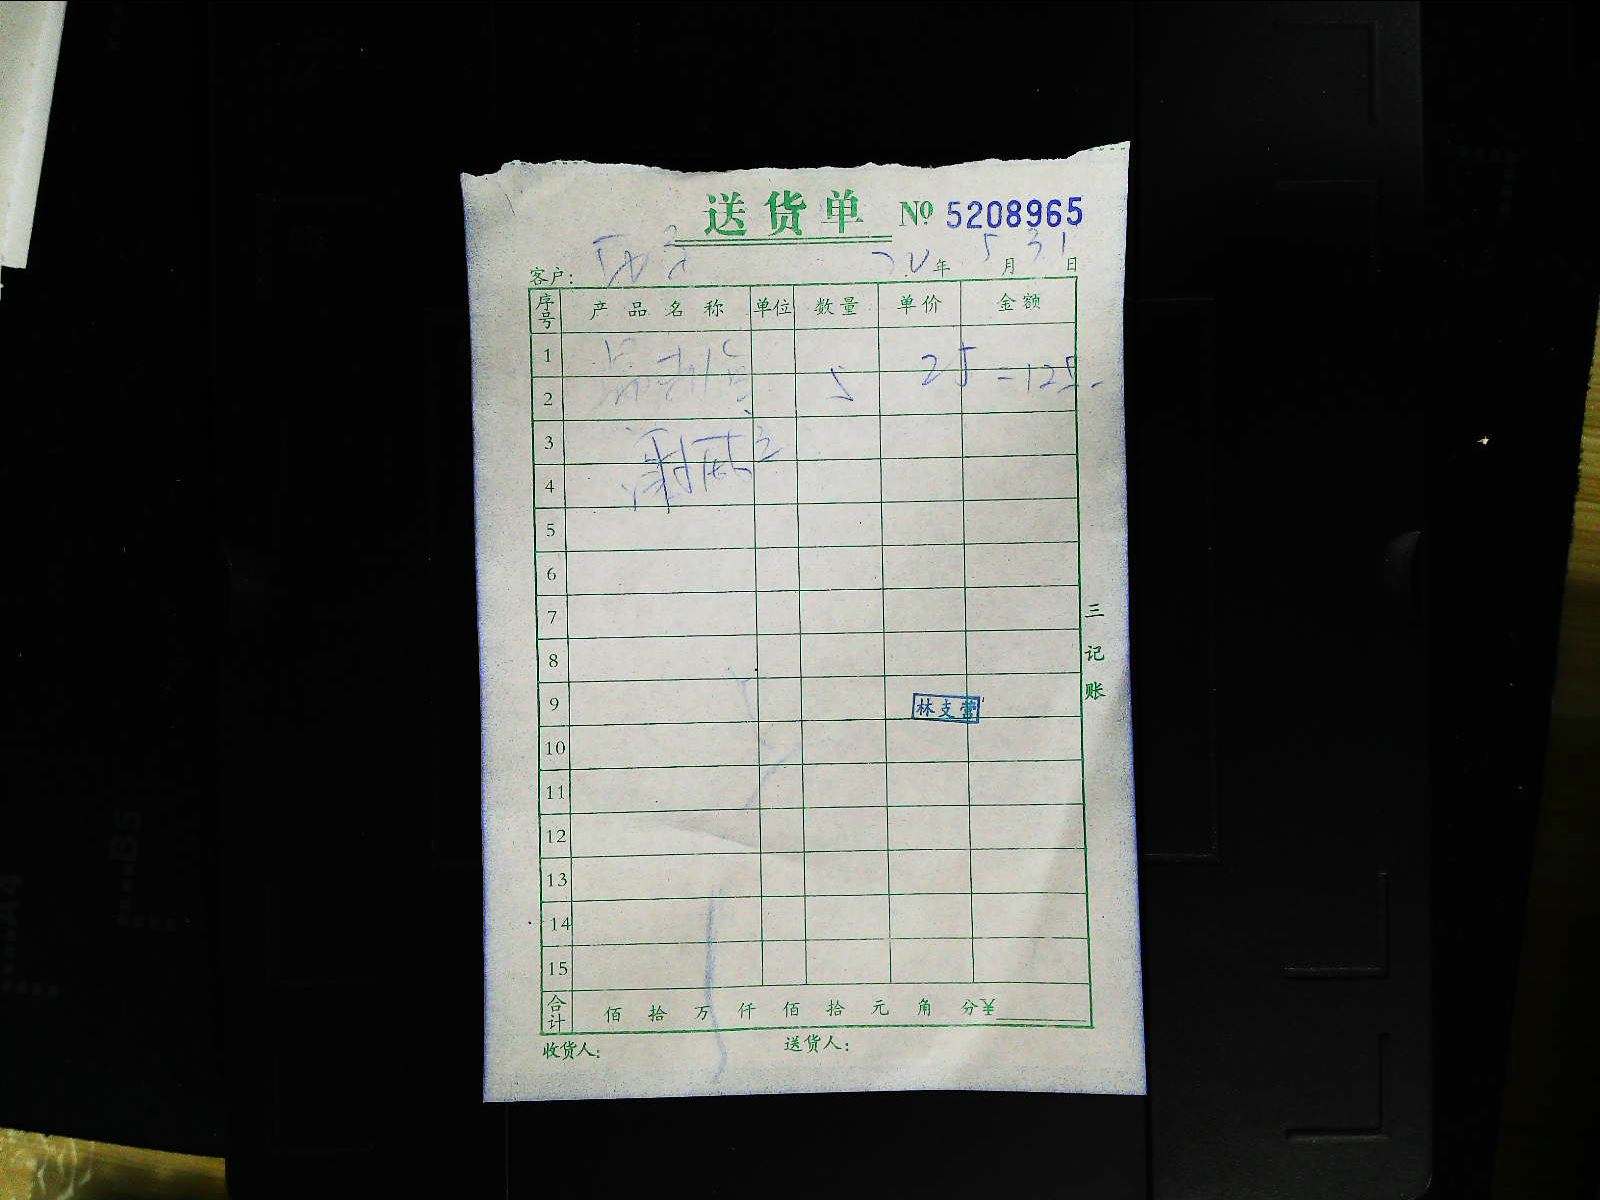 送货单 № 5208965
客户: 20年 5月 31日
序号 产品名称 单位 数量 单价 金额
1
2 5 25 =125.-
3
4
5
6
7
8
9 林支萱
10
11
12
13
14
15
合计 佰 拾 万 仟 佰 拾 元 角 分¥
收货人: 送货人:
三记账
B5
A4